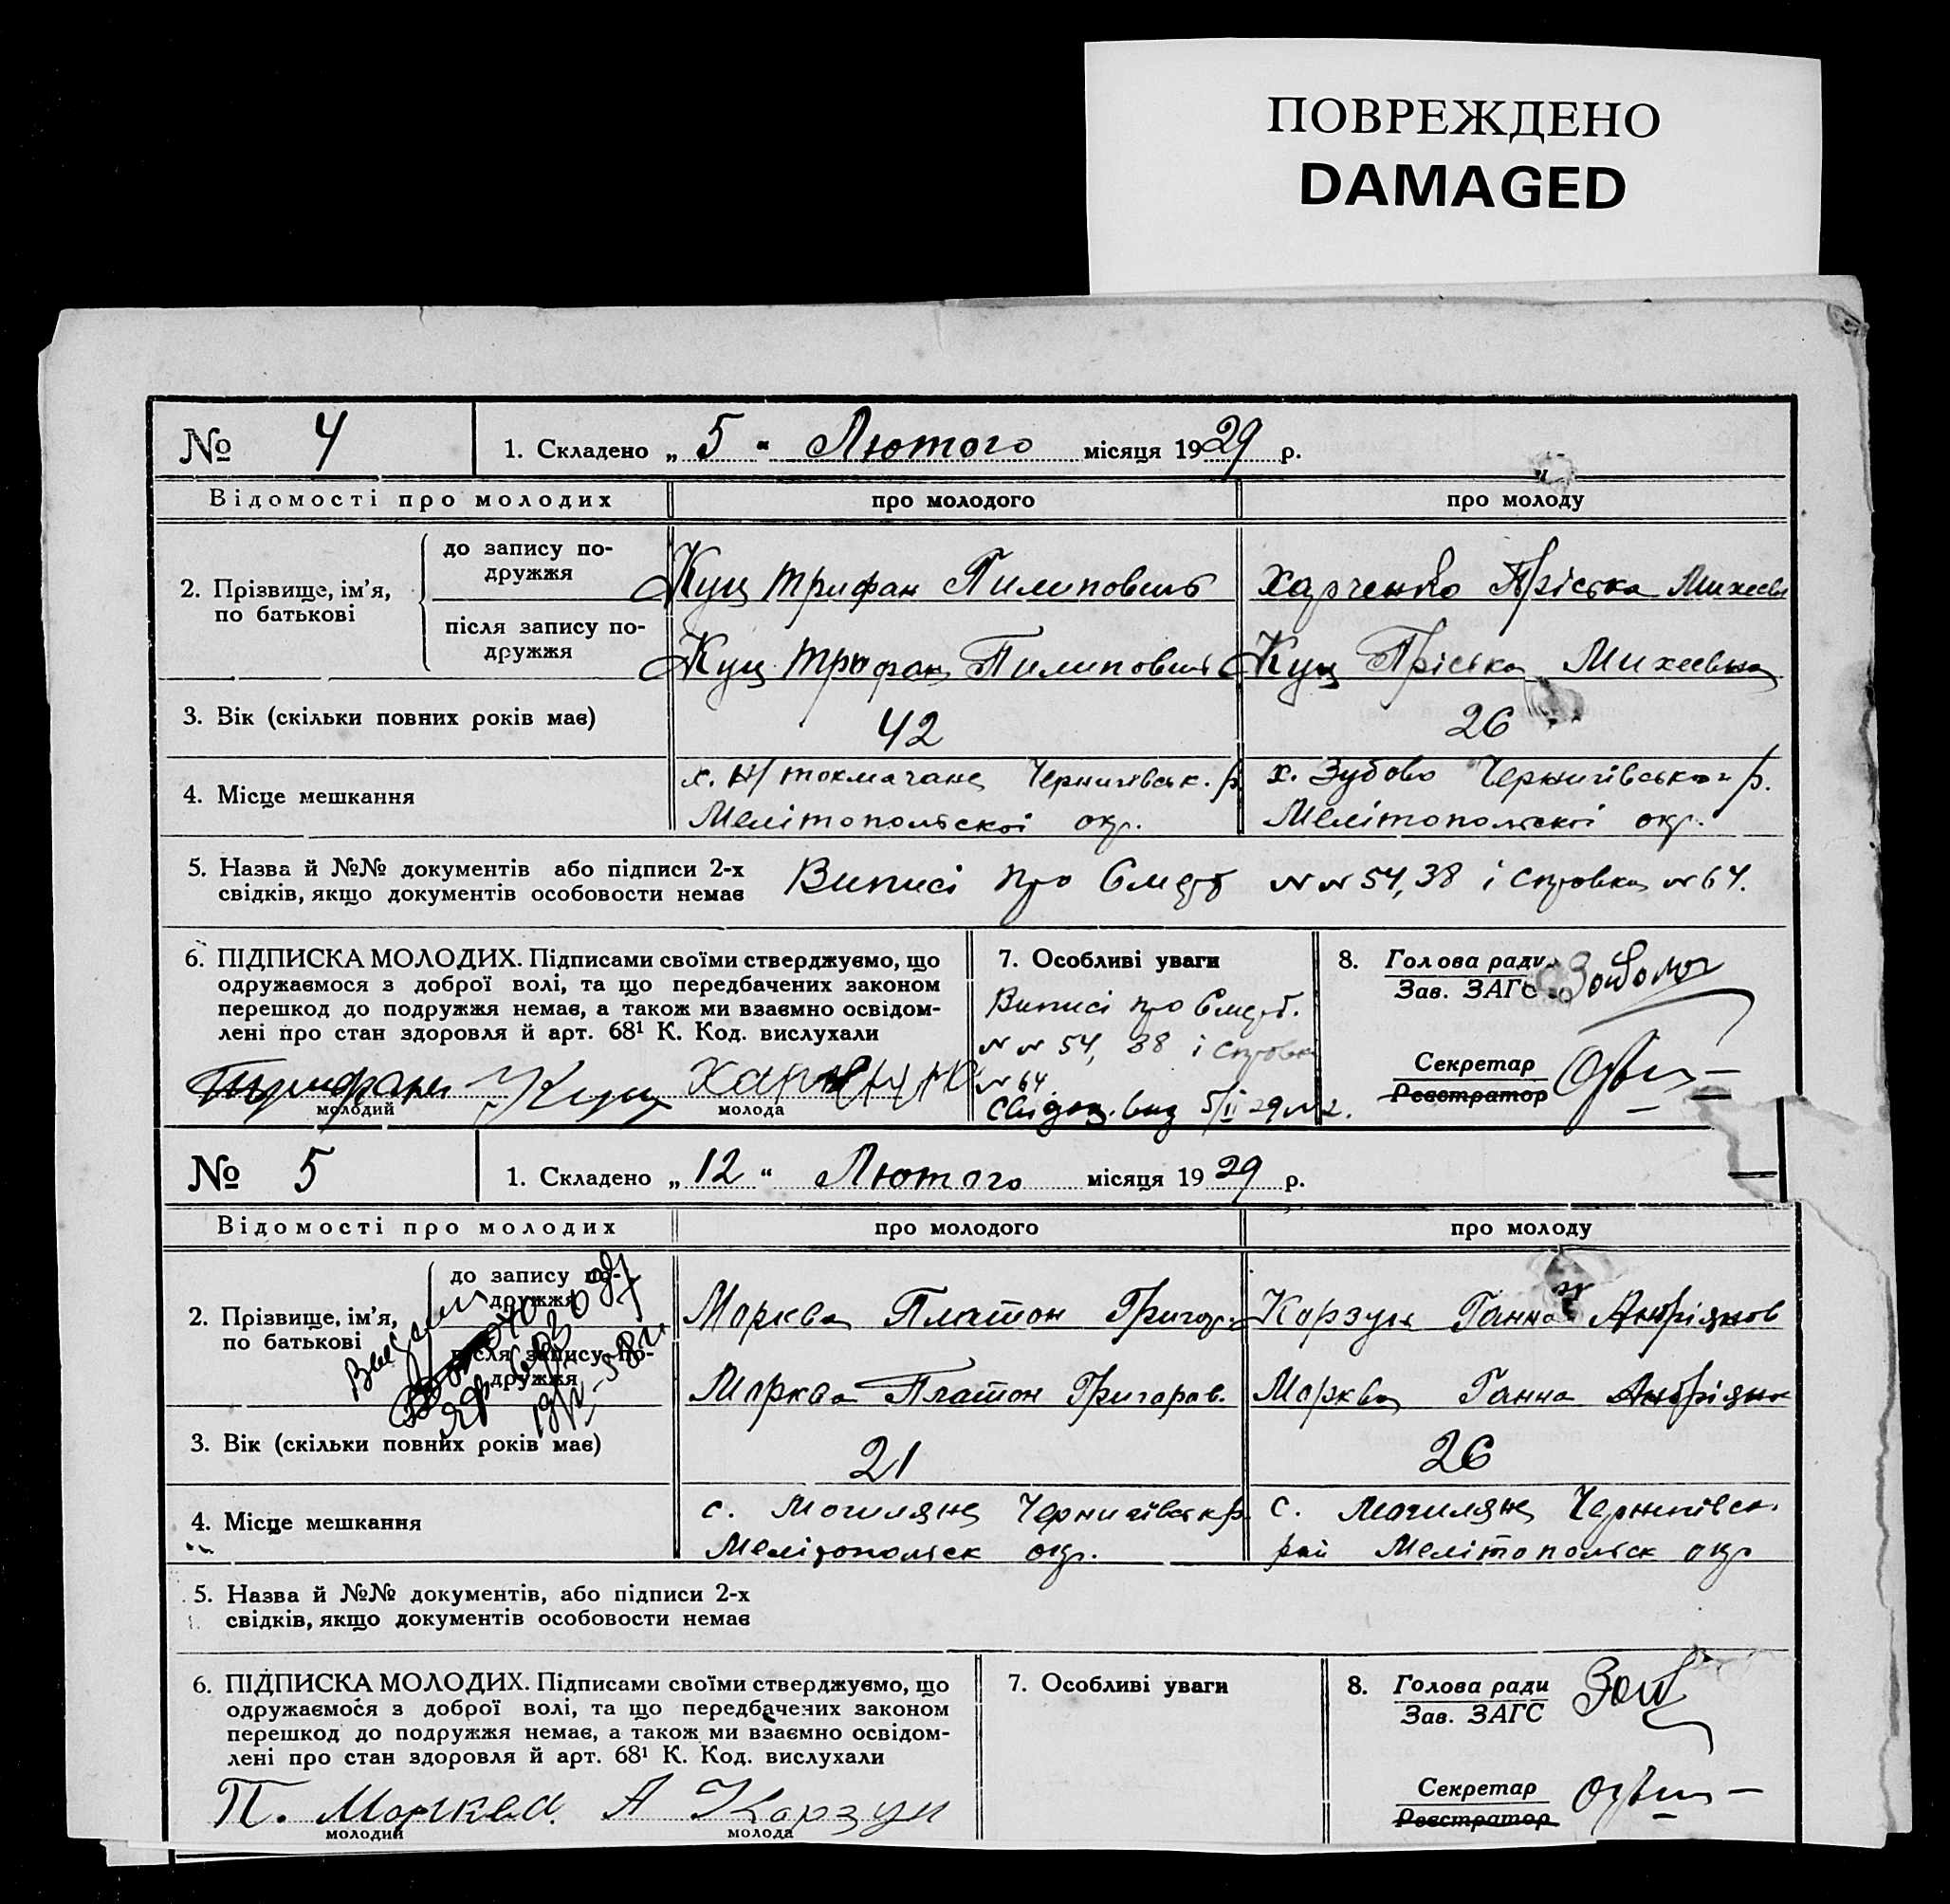 ПОВРЕЖДЕНО
DAMAGED
№ 4 1. Складено „ 5 " Лютого місяця 1929 р.
Відомості про молодих про молодого про молоду
2. Прізвище, ім'я, по батькові
до запису по-
дружжя
Куц Трифан Пилипович Харченко Пріська Михеевн
після запису по-
дружжя
Куц Трифан Пилипович Куц Пріська Михеевна
3. Вік (скільки повних років має) 42 26
4. Місце мешкання
х. Н/токмачанц Чернигівськ. р. х. Зубово Чернигівського р.
Мелітопольскоі окр. Мелітопольскоі окр.
5. Назва й №№ документів або підписи 2-х
свідків, якщо документів особовости немає
Виписі про Смерт №№ 54, 38 і справка №64.
6. ПІДПИСКА МОЛОДИХ. Підписами своїми стверджуємо, що
одружаємося з доброї волі, та що передбачених законом
перешкод до подружжя немає, а також ми взаємно освідом-
лені про стан здоровля й арт. 68¹ К. Код. вислухали
Трифан Куц Харченко
молодий молода
7. Особливі уваги
Виписі про Смерт.
№№ 54, 38 і справка
№ 64.
Свідоц. вид 5/II 29 № 2.
8. Голова ради
Зав. ЗАГС
Секретар
Реєстратор
№ 5 1. Складено „ 12 " Лютого місяця 1929 р.
Відомості про молодих про молодого про молоду
2. Прізвище, ім'я,
по батькові
до запису по-
дружжя
Морква Платон Григор. Корзун Ганна Андріянов
після запису по-
дружжя
Морква Платон Григоров. Морква Ганна Андріян
3. Вік (скільки повних років має) 21 26
4. Місце мешкання
с. Могиляне Чернигівськ р. с. Могиляне Чернигівск.
Мелітопольск окр. рай Мелітопольск окр
5. Назва й №№ документів, або підписи 2-х
свідків, якщо документів особовости немає
6. ПІДПИСКА МОЛОДИХ. Підписами своїми стверджуємо, що
одружаємося з доброї волі, та що передбачених законом
перешкод до подружжя немає, а також ми взаємно освідом-
лені про стан здоровля й арт. 68¹ К. Код. вислухали
П. Морква А Корзун
молодий молода
7. Особливі уваги
8. Голова ради
Зав. ЗАГС
Секретар
Реєстратор